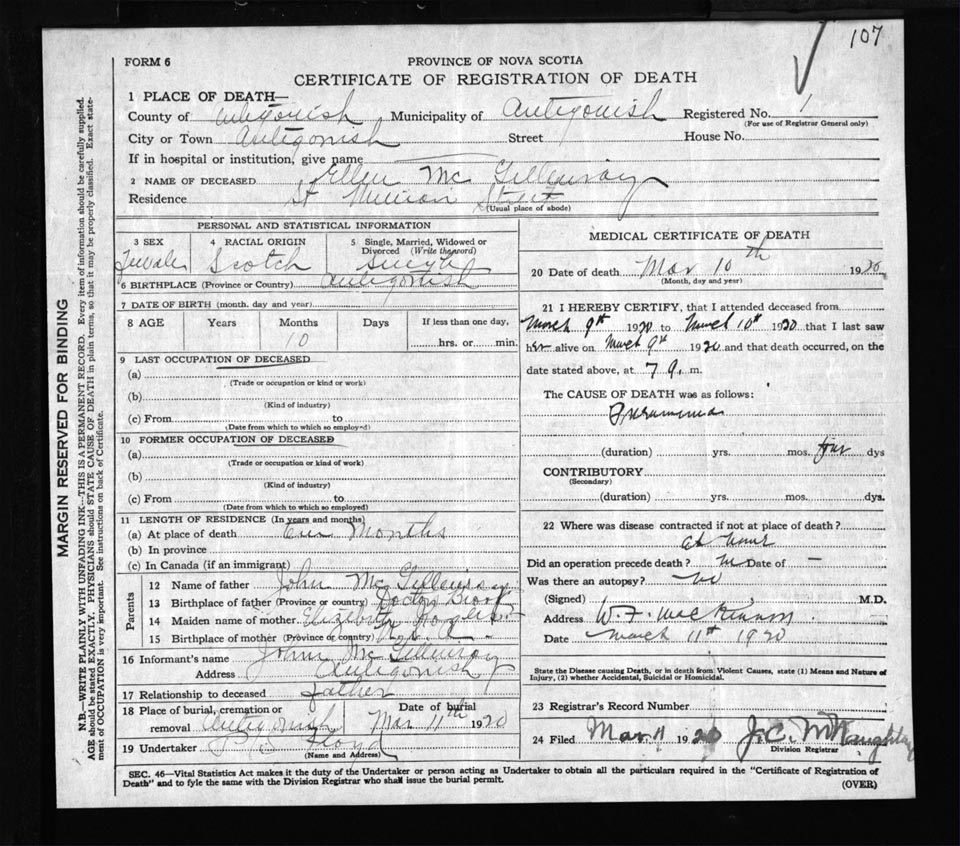 107
FORM 6
PROVINCE OF NOVA SCOTIA
CERTIFICATE OF REGISTRATION OF DEATH
1 PLACE OF DEATH—
County of Antigonish Municipality of Antigonish Registered No. 1
(For use of Registrar General only)
City or Town Antigonish Street House No.
If in hospital or institution, give name
2 NAME OF DECEASED Ellen Mc Gillivray
Residence St Ninian Street
(Usual place of abode)
MARGIN RESERVED FOR BINDING
N.B.—WRITE PLAINLY WITH UNFADING INK—THIS IS A PERMANENT RECORD. Every item of information should be carefully supplied.
AGE should be stated EXACTLY. PHYSICIANS should STATE CAUSE OF DEATH in plain terms, so that it may be properly classified. Exact state-
ment of OCCUPATION is very important. See instructions on back of Certificate.
PERSONAL AND STATISTICAL INFORMATION
3 SEX 4 RACIAL ORIGIN 5 Single, Married, Widowed or
Divorced (Write the word)
Female Scotch Single
6 BIRTHPLACE (Province or Country) Antigonish
7 DATE OF BIRTH (month, day and year)
8 AGE Years Months Days If less than one day,
10 hrs. or min.
9 LAST OCCUPATION OF DECEASED
(a)
(Trade or occupation or kind or work)
(b)
(Kind of industry)
(c) From to
(Date from which to which so employed)
10 FORMER OCCUPATION OF DECEASED
(a)
(Trade or occupation or kind of work)
(b)
(Kind of industry)
(c) From to
(Date from which to which so employed)
11 LENGTH OF RESIDENCE (In years and months)
(a) At place of death Months
(b) In province
(c) In Canada (if an immigrant)
Parents
12 Name of father John Mc Gillivray
13 Birthplace of father (Province or country) Doctors Brook
14 Maiden name of mother Elizabeth
15 Birthplace of mother (Province or country)
16 Informant's name John Mc Gillivray
Address Antigonish
17 Relationship to deceased father
18 Place of burial, cremation or Date of burial
removal Antigonish Mar 11th 1920
19 Undertaker Floyd
(Name and Address)
MEDICAL CERTIFICATE OF DEATH
20 Date of death Mar 10th 1920
(Month, day and year)
21 I HEREBY CERTIFY, that I attended deceased from
March 9th 1920 to March 10th 1920 that I last saw
her alive on March 9th 1920 and that death occurred, on the
date stated above, at 7 a. m.
The CAUSE OF DEATH was as follows:
Pneumonia
(duration) yrs. mos. four dys
CONTRIBUTORY
(Secondary)
(duration) yrs. mos. dys.
22 Where was disease contracted if not at place of death?
at home
Did an operation precede death? no Date of —
Was there an autopsy? no
(Signed) M.D.
Address W. F. MacKinnon
Date March 11th 1920
State the Disease causing Death, or in death from Violent Causes, state (1) Means and Nature of
Injury, (2) whether Accidental, Suicidal or Homicidal.
23 Registrar's Record Number
24 Filed Mar 11 1920 J.C. McNaughton
Division Registrar
SEC. 46—Vital Statistics Act makes it the duty of the Undertaker or person acting as Undertaker to obtain all the particulars required in the "Certificate of Registration of
Death" and to fyle the same with the Division Registrar who shall issue the burial permit.
(OVER)